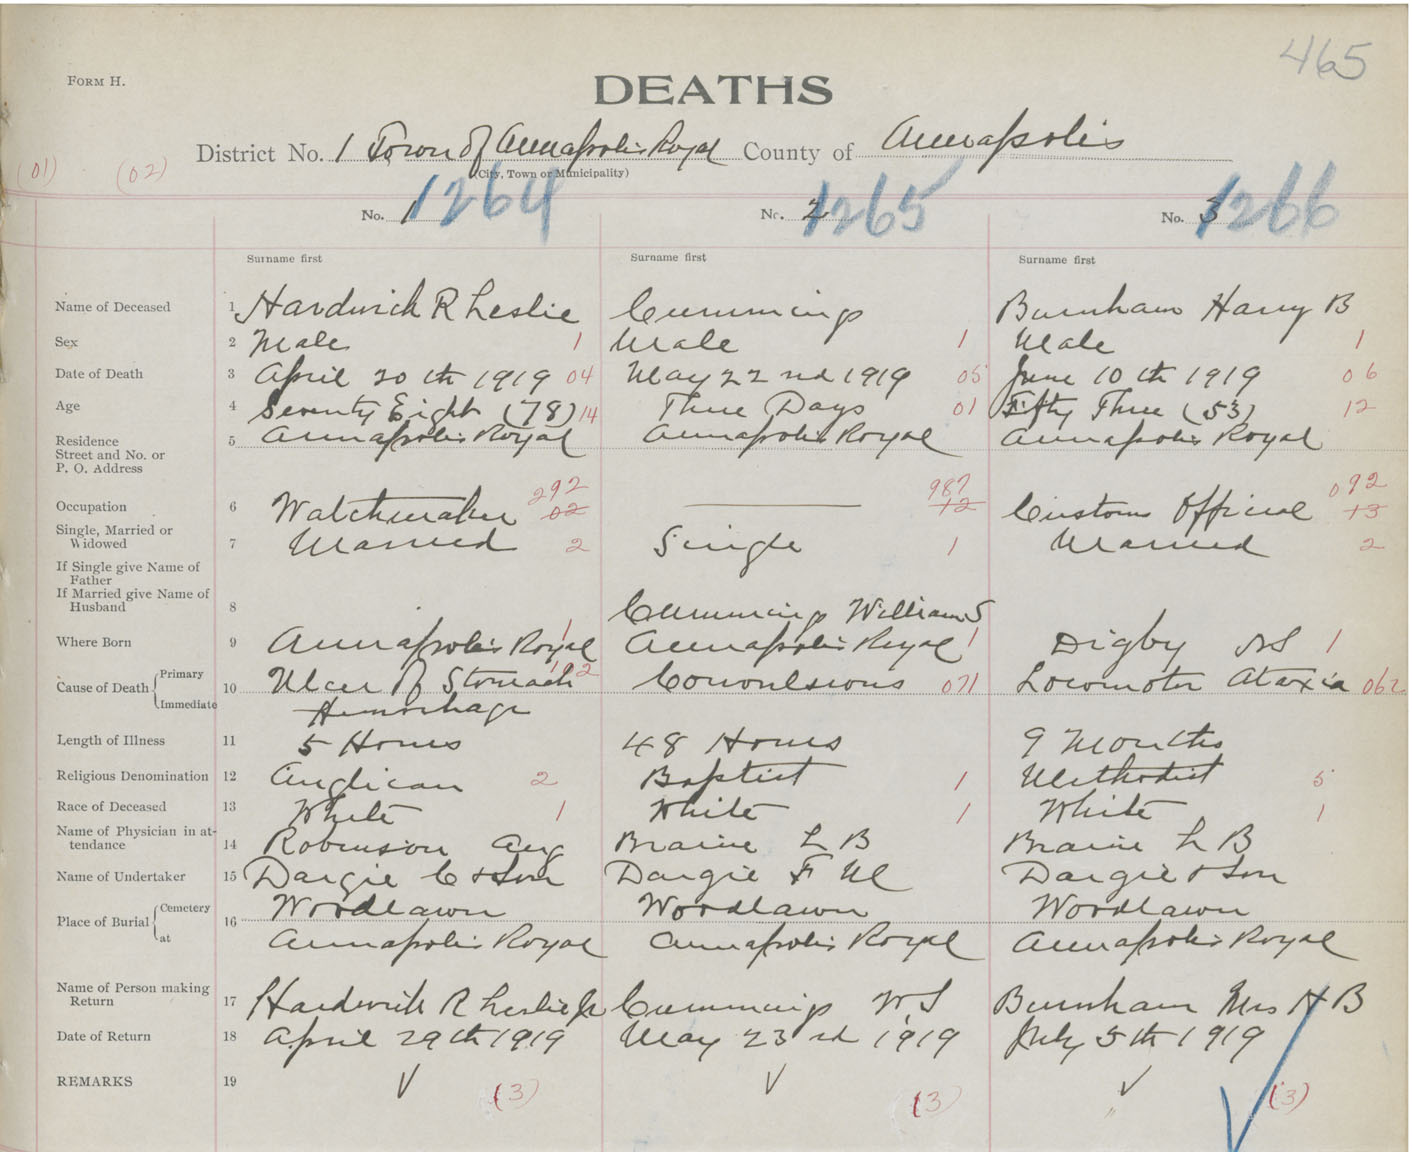 465
FORM H.
DEATHS
District No. 1 Town of Annapolis Royal County of Annapolis
(City, Town or Municipality)
(01) (02)
No. 1 1264 No. 2 1265 No. 3 1266
Surname first Surname first Surname first
Name of Deceased 1 Hardwick R Leslie Cummings Burnham Harry B
Sex 2 Male 1 Male 1 Male 1
Date of Death 3 April 20th 1919 04 May 22nd 1919 05 June 10th 1919 06
Age 4 Seventy Eight (78) 14 Three Days 01 Fifty Three (53) 12
Residence 5 Annapolis Royal Annapolis Royal Annapolis Royal
Street and No. or
P. O. Address
292 987 092
Occupation 6 Watchmaker 02 12 Customs Official 13
Single, Married or
Widowed 7 Married 2 Single 1 Married 2
If Single give Name of
Father
If Married give Name of
Husband 8 Cummings William S
Where Born 9 Annapolis Royal 1 Annapolis Royal 1 Digby NS 1
Cause of Death Primary 10 Ulcer of Stomach 102 Convulsions 071 Locomotor Ataxia 062
Immediate Hemorhage
Length of Illness 11 5 Hours 48 Hours 9 Months
Religious Denomination 12 Anglican 2 Baptist 1 Methodist 5
Race of Deceased 13 White 1 White 1 White 1
Name of Physician in at-
tendance 14 Robinson Aug Braine L B Braine L B
Name of Undertaker 15 Dargie C & Son Dargie F M Dargie & Son
Place of Burial Cemetery 16 Woodlawn Woodlawn Woodlawn
at Annapolis Royal Annapolis Royal Annapolis Royal
Name of Person making
Return 17 Hardwick R Leslie Jr Cummings W S Burnham Mrs H B
Date of Return 18 April 29th 1919 May 23rd 1919 July 5th 1919
REMARKS 19 (3) (3) (3)